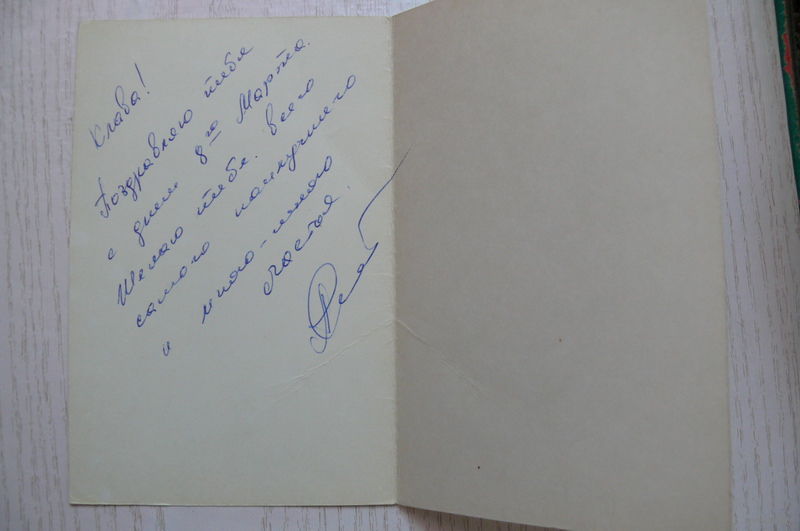 Клава!
Поздравляю тебя
с днем 8го Марта.
Желаю тебе всего
самого наилучшего
и много-много
счастья.